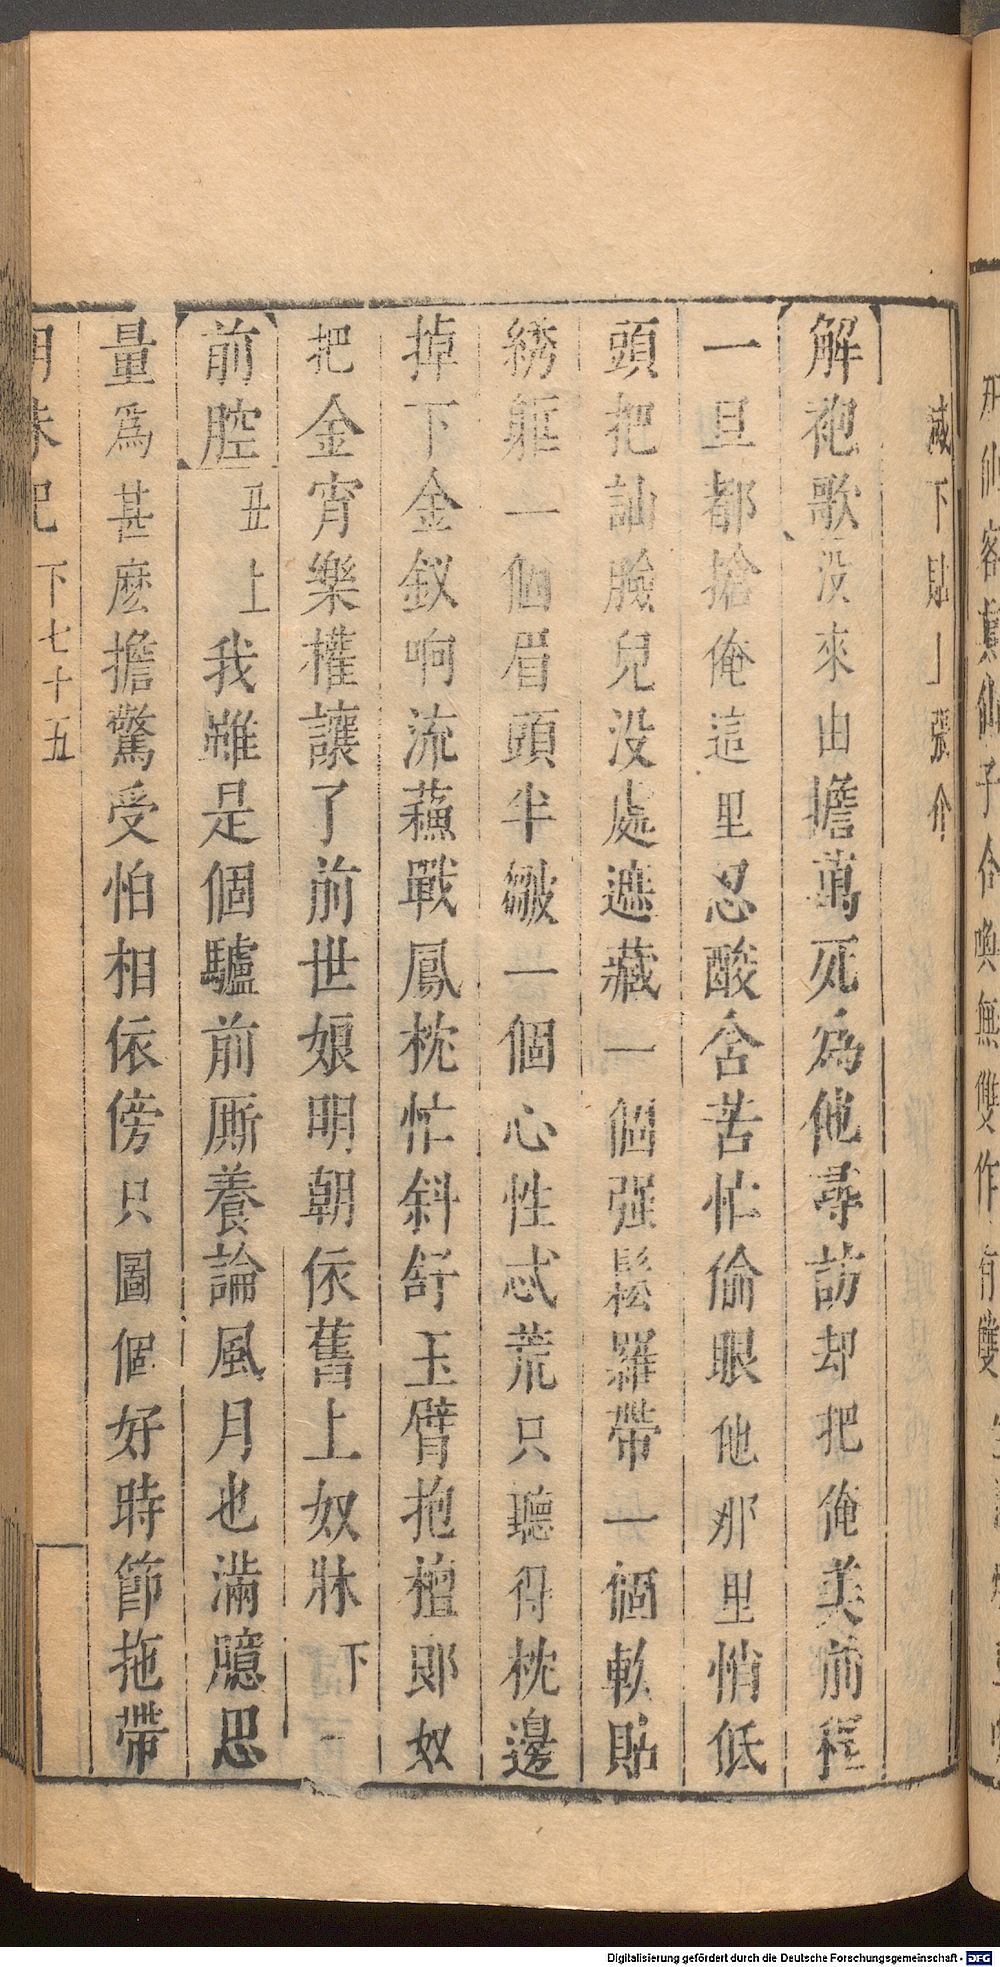 滅下貼丨張介
解袍歌没來由擔萬死爲他尋訪却把俺美前程
一旦都搶俺這里忍酸含苦忙偷眼他那里悄低
頭把訕臉兒没處遮藏一個强鬆羅帶一個軟貼
綉軀一個眉頭半皺一個心性忒荒只聽得枕邊
掉下金釵响流蘇戰鳳枕忙斜舒玉臂抱檀郎奴
把金宵樂權讓了前世娘明朝依舊上奴牀下
前腔丑上我雖是個驢前厮養論風月也滿臆思
量爲甚麽擔驚受怕相依傍只圖個好時節拖帶
明珠記下七十五
Digitalisierung gefördert durch die Deutsche Forschungsgemeinschaft - DFG